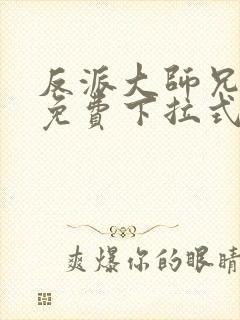 反派大師兄
免費下拉式
爽爆你的眼睛